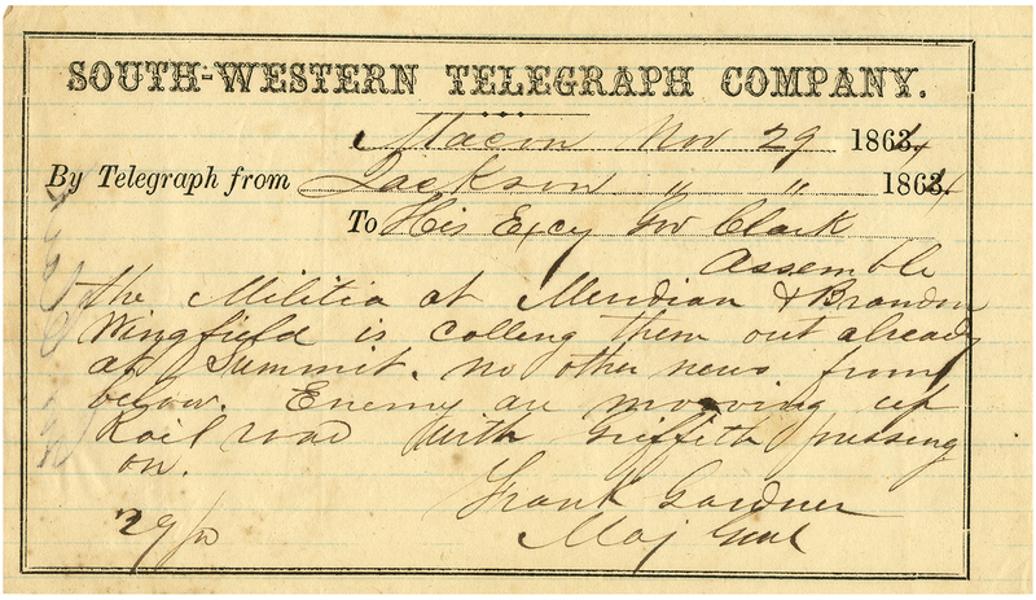 SOUTH-WESTERN TELEGRAPH COMPANY.
Macon Nov 29 1864
By Telegraph from Jackson " " 1864
To His Excy Gov Clark
Assemble
the Militia at Meridian & Brandon
Wingfield is calling them out already
at Summit. no other news from
below. Enemy are mooving up
Rail road with Griffith pressing
on.
Frank Gardner
Maj Genl
29/